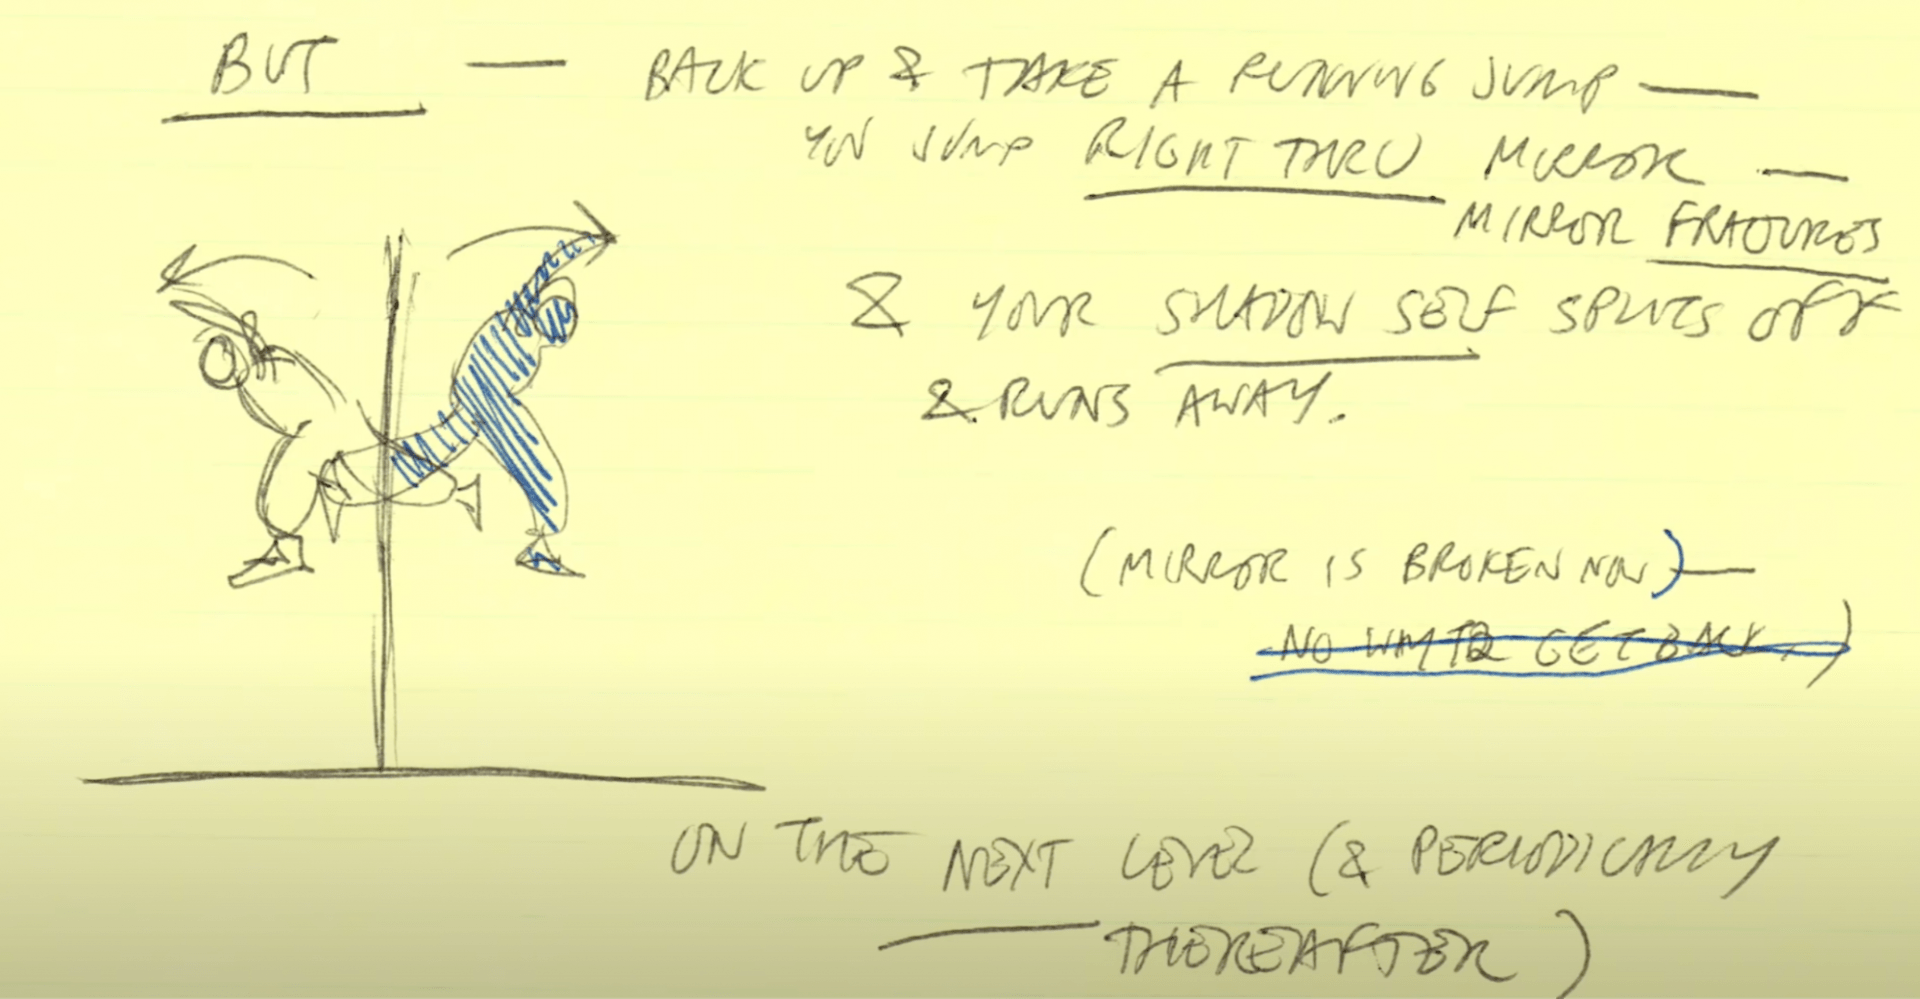 BUT — BACK UP & TAKE A RUNNING JUMP —
YOU JUMP RIGHT THRU MIRROR —
MIRROR FRACTURES
& YOUR SHADOW SELF SPLITS OFF
& RUNS AWAY.
(MIRROR IS BROKEN NOW) —
NO WAY TO GET BACK.)
ON THE NEXT LEVEL (& PERIODICALLY
THEREAFTER)